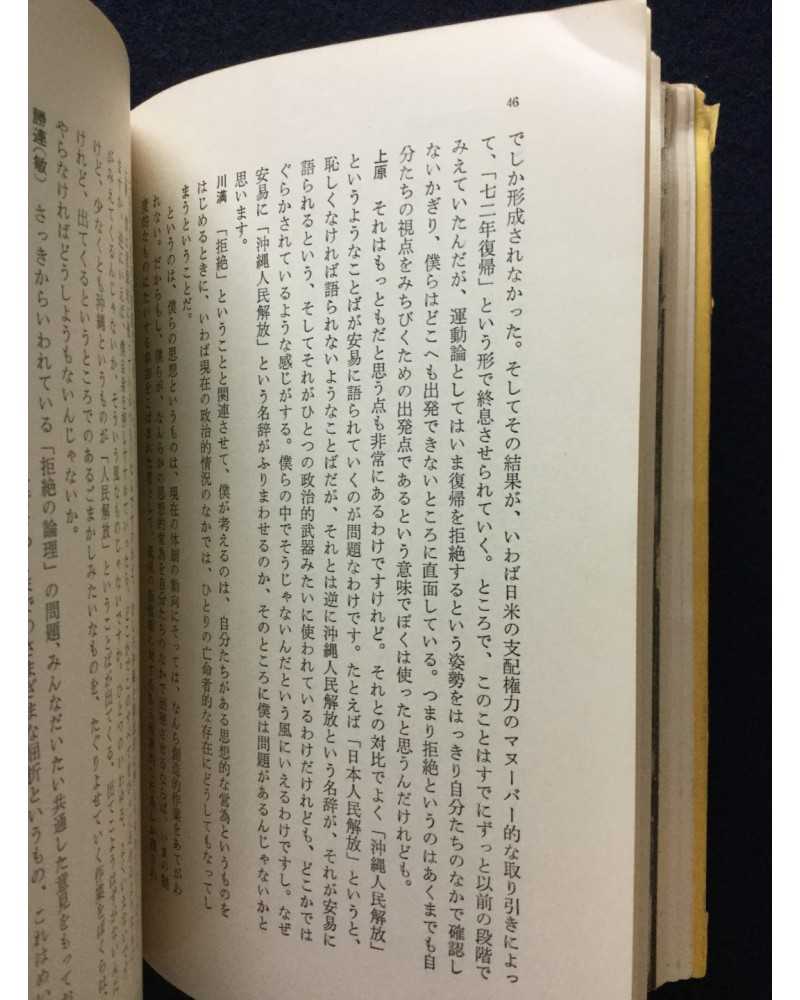 46
でしか形成されなかった。そしてその結果が、いわば日米の支配権力のマヌーバー的な取り引きによっ
て、「七二年復帰」という形で終息させられていく。ところで、このことはすでにずっと以前の段階で
みえていたんだが、運動論としてはいま復帰を拒絶するという姿勢をはっきり自分たちのなかで確認し
ないかぎり、僕らはどこへも出発できないところに直面している。つまり拒絶というのはあくまでも自
分たちの視点をみちびくための出発点であるという意味でぼくは使ったと思うんだけれども。
上原　それはもっともだと思う点も非常にあるわけですけれど。それとの対比でよく「沖縄人民解放」
というようなことばが安易に語られていくのが問題なわけです。たとえば「日本人民解放」というと、
恥しくなければ語られないようなことばだが、それとは逆に沖縄人民解放という名辞が、それが安易に
語られるという、そしてそれがひとつの政治的武器みたいに使われているわけだけれども、どこかでは
ぐらかされているような感じがする。僕らの中でそうじゃないんだという風にいえるわけですし。なぜ
安易に「沖縄人民解放」という名辞がふりまわせるのか、そのところに僕は問題があるんじゃないかと
思います。
川満　「拒絶」ということと関連させて、僕が考えるのは、自分たちがある思想的な営為というものを
はじめるときに、いわば現在の政治的情況のなかでは、ひとりの亡命者的な存在にどうしてもなってし
まうということだ。
というのは、僕らの思想というものは、現在の体制の動向にそっては、なんら創造的作業をあてがわ
れない。だからもし、僕らが、なんらかの思想的営為を自分たちのなかで
けど、少なくとも沖縄というものが「人民解放」ということばが出てくる。
けれど、出てくるというところでのあるごまかしみたいなものを、たぐりよせていく作業をぼくらは、
やらなければどうしようもないんじゃないか。
勝連(敏)　さっきからいわれている「拒絶の論理」の問題、みんなだいたい共通した意見をもって